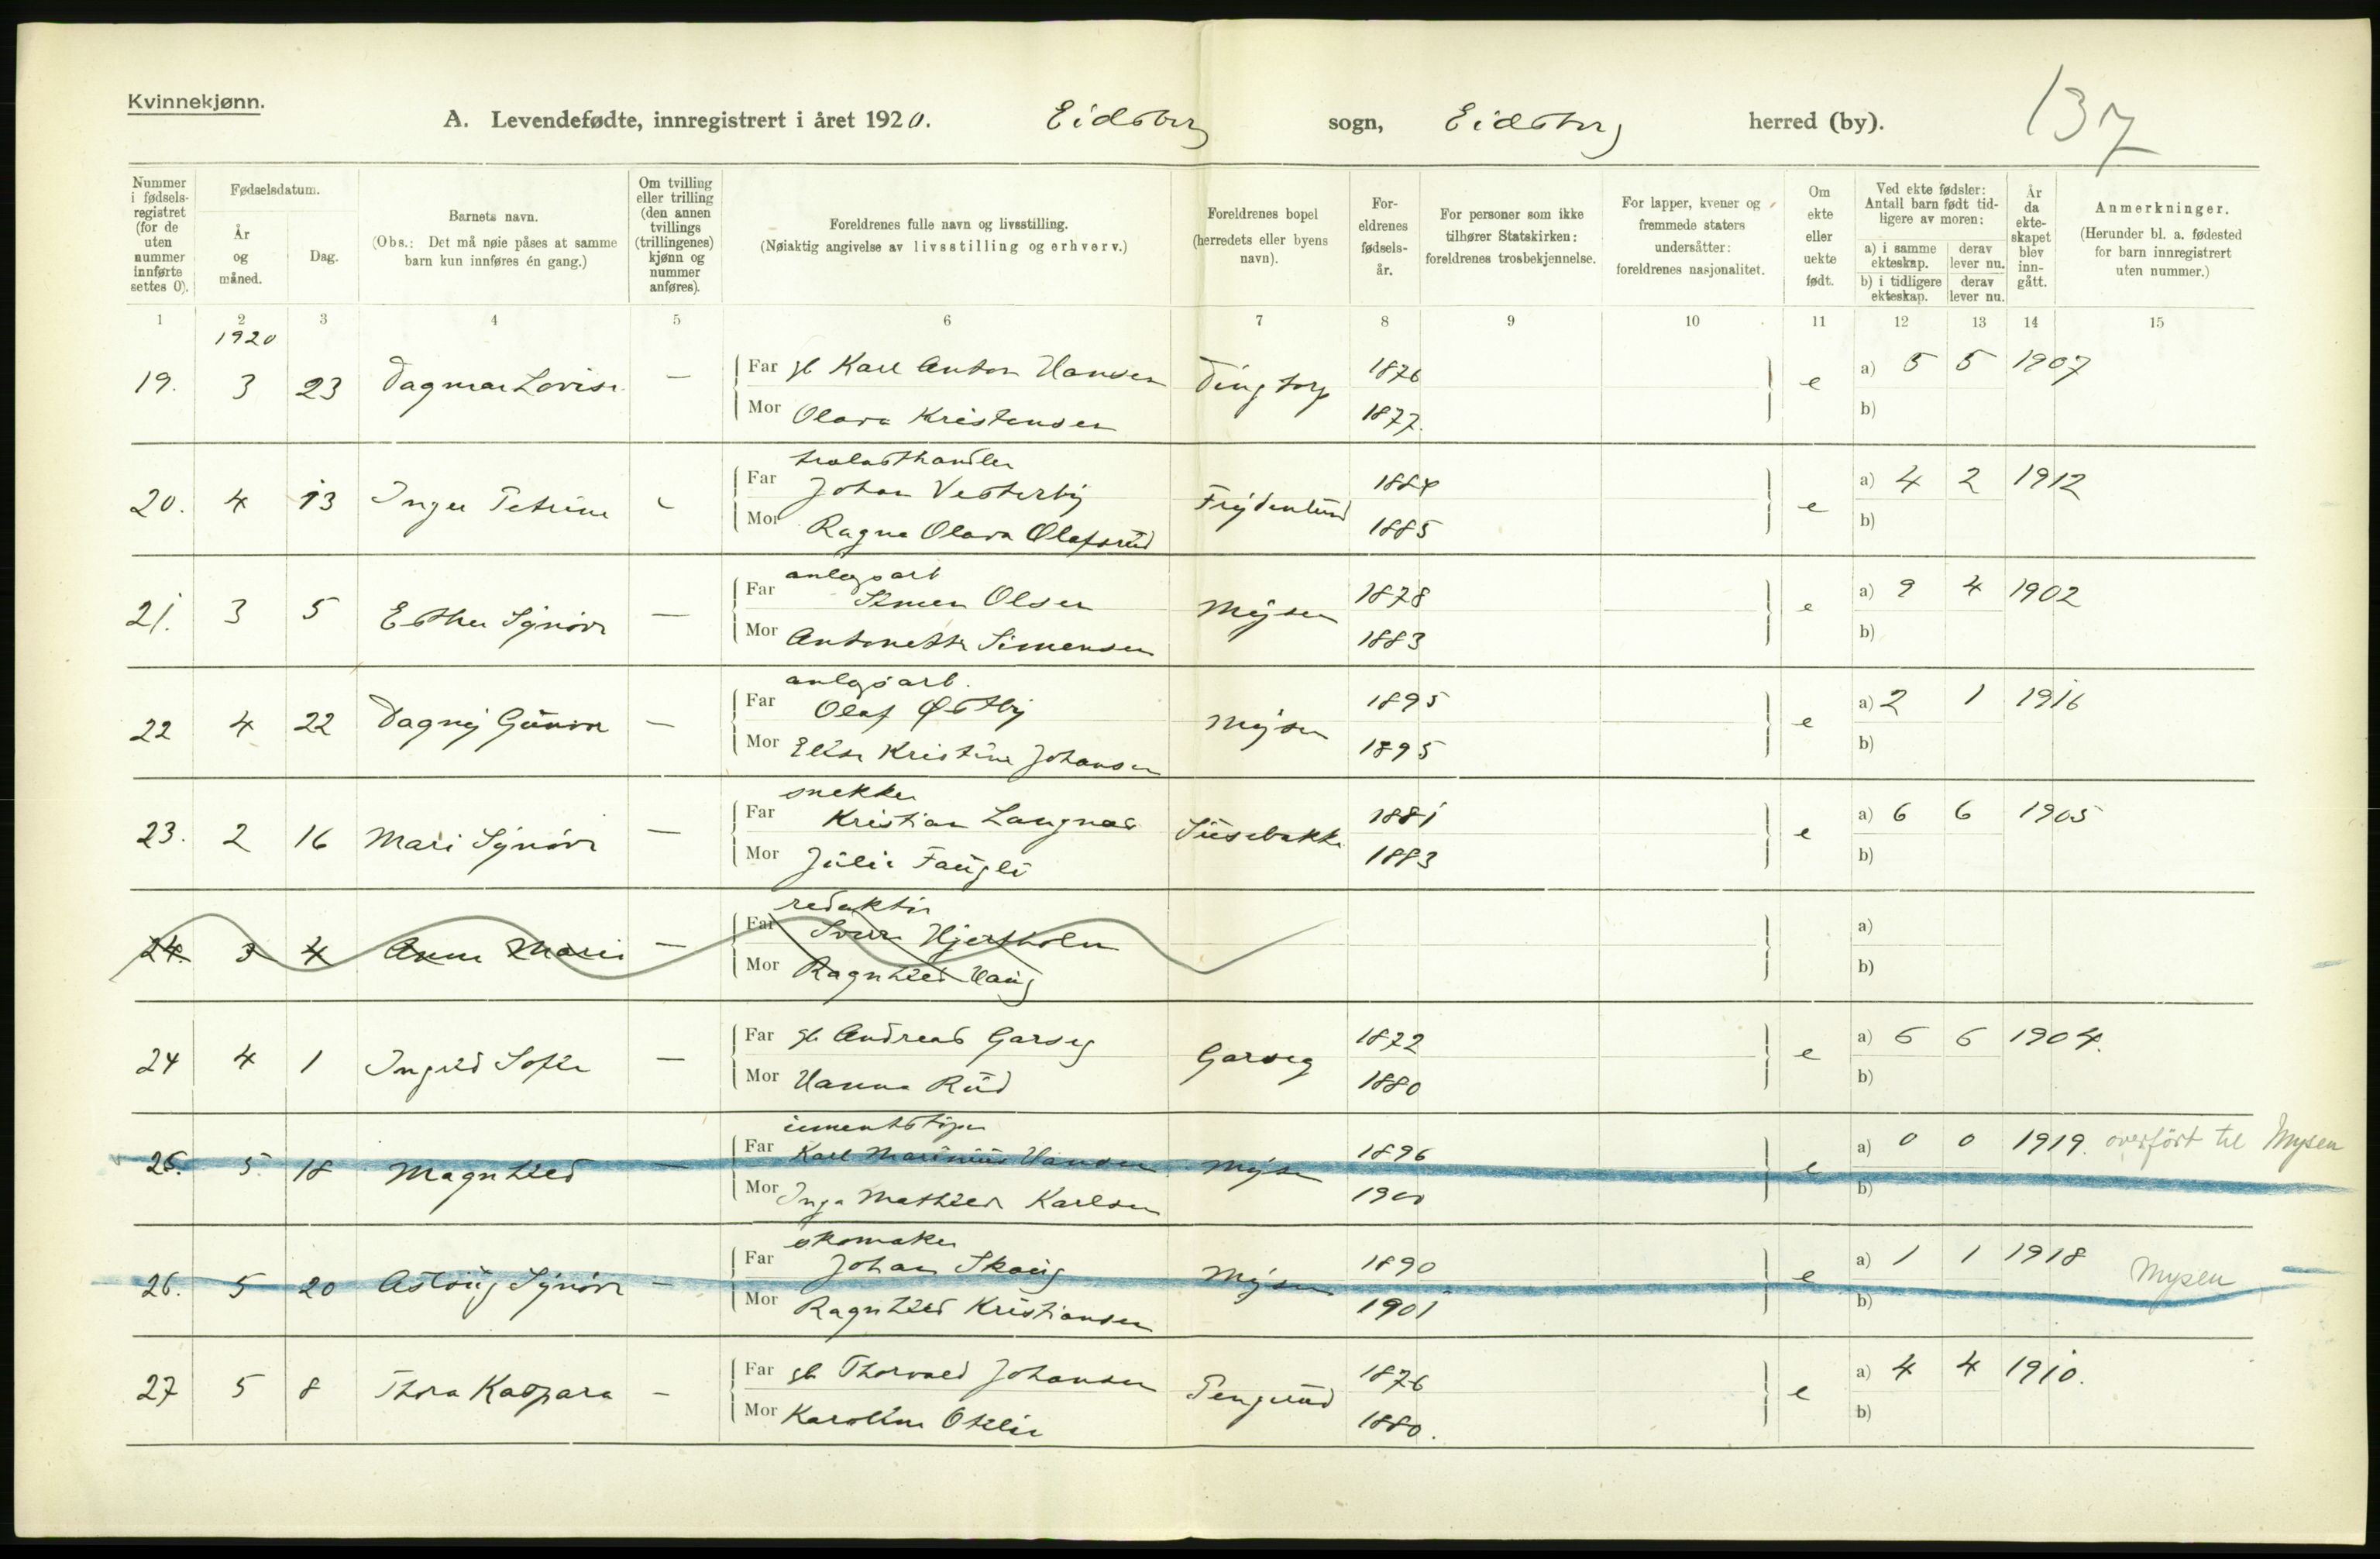 Kvinnekjønn.
A. Levendefødte, innregistrert i året 1920. Eidsberg sogn, Eidsberg herred (by). 137
Nummer i fødselsregistret (for de uten nummer innførte settes 0).
Fødselsdatum.
År og måned.
Dag.
Barnets navn.
(Obs.: Det må nøie påses at samme barn kun innføres én gang.)
Om tvilling eller trilling (den annen tvillings (trillingenes) kjønn og nummer anføres).
Foreldrenes fulle navn og livsstilling.
(Nøiaktig angivelse av livsstilling og erhverv.)
Foreldrenes bopel (herredets eller byens navn).
Foreldrenes fødselsår.
For personer som ikke tilhører Statskirken: foreldrenes trosbekjennelse.
For lapper, kvener og fremmede staters undersåtter: foreldrenes nasjonalitet.
Om ekte eller uekte født.
Ved ekte fødsler: Antall barn født tidligere av moren:
a) i samme ekteskap. derav lever nu.
b) i tidligere ekteskap. derav lever nu.
År da ekteskapet blev inngått.
Anmerkninger.
(Herunder bl. a. fødested for barn innregistrert uten nummer.)
1 2 3 4 5 6 7 8 9 10 11 12 13 14 15
1920
19. 3 23 Dagmar Lovise — Far gb Karl Anton Hansen Dingtorp 1876 e a) 5 5 1907
Mor Olava Kristensen 1877. b)
trælasthandler
20. 4 13 Inger Petrine - Far Johan Vesterby Frydenlund 1884 e a) 4 2 1912
Mor Ragna Olava Olafsrud 1885 b)
anlegsarb
21. 3 5 Esther Synøve — Far Simen Olsen Mysen 1878 e a) 9 4 1902
Mor Antonette Simensen 1883 b)
anlegsarb.
22 4 22 Dagny Gunvor — Far Olaf Østby Mysen 1895 e a) 2 1 1916
Mor Elise Kristine Johansen 1895 b)
snekker
23. 2 16 Mari Synøve — Far Kristian Langnæs Susebakke 1881 e a) 6 6 1905
Mor Julie Fangli 1883 b)
redaktør
24. 3 4 Anne Marie — Far Sverre Hjertholm a)
Mor Ragnhild Haug b)
24 4 1 Ingrid Sofie — Far gb Andreas Garseg Garseg 1872 e a) 6 6 1904.
Mor Hanna Rud 1880 b)
cementstøper
25. 5. 18 Magnhild — Far Karl Marinius Hansen Mysen 1896 e a) 0 0 1919. overført til Mysen
Mor Inga Mathilde Karlsen 1900 b)
skomaker
26. 5 20 Aslaug Synøve — Far Johan Skaug Mysen 1890 e a) 1 1 1918 Mysen
Mor Ragnhild Kristiansen 1901 b)
27 5 8 Thora Kaspara - Far gb Thorvald Johansen Pengerud 1876 e a) 4 4 1910.
Mor Karoline Otilie 1880. b)